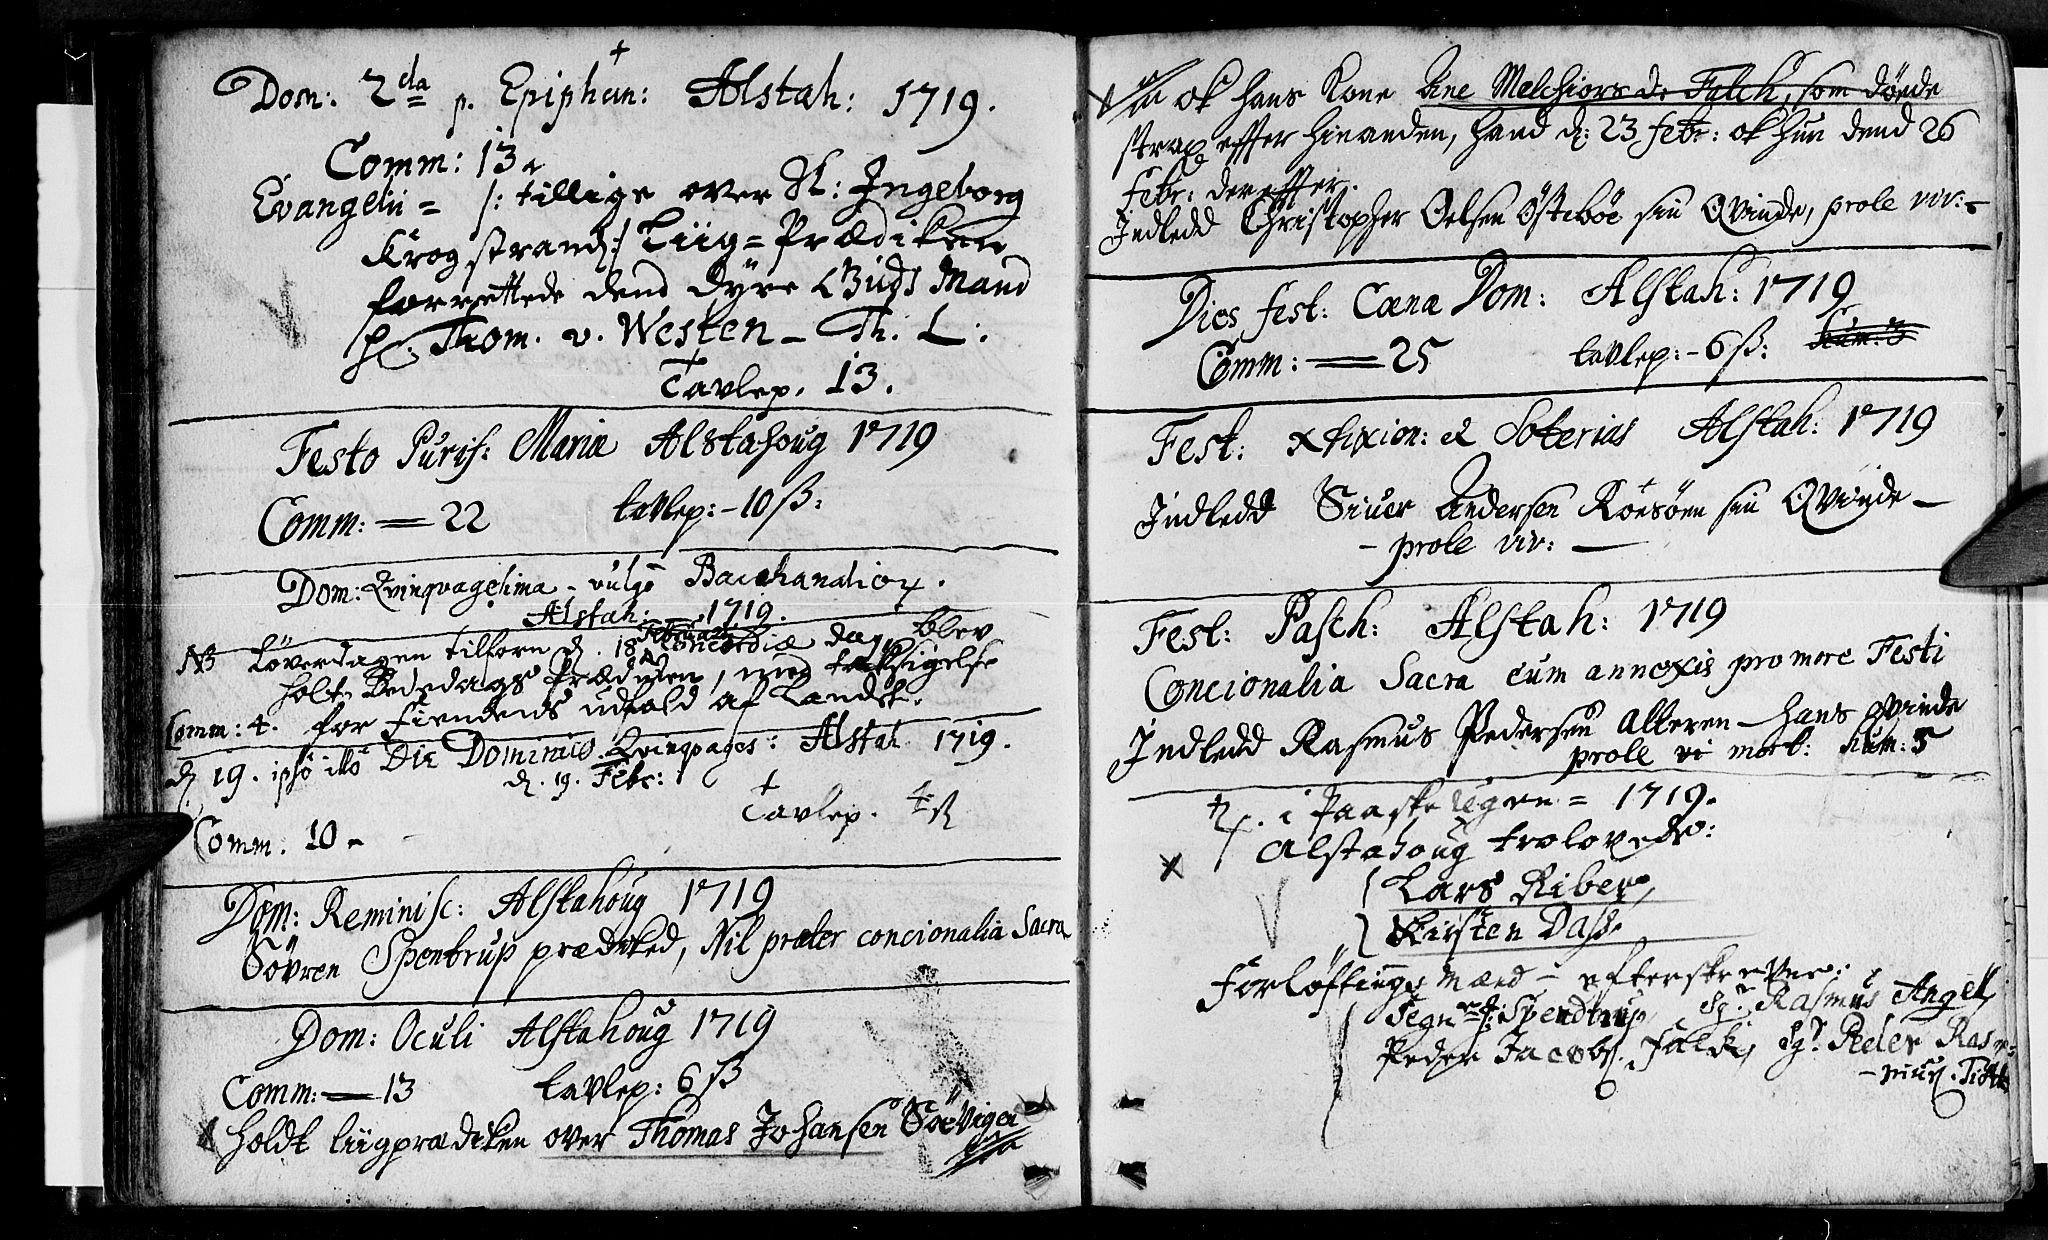 Dom: 2da p. Epiphan: Alstah: 1719.
Comm: 13.
Evangelii = /: tillige over Sl: Ingeborg
Krogstrand :/ Liig = Prædiken
forrettede dend dyre Guds Mand
Hr. Thom. v. Westen - Th. L:
Tavlep. 13.
Festo Purif: Mariæ Alstahoug 1719
Comm: = 22 tavlep: - 10 ß:
Dom: Qvinqvagesima - vulgo Bacchanalior.
Alstah: 1719.
NB Löverdagen tilforn d. 18 Februarii Concordiæ dag, blev
holt Bededags Prædiken, med taksigelse
Comm: 4. for Fiendens udfald af Landet.
d 19. ipso illo Die Dominico Qvinqvages: Alstah 1719.
d. 19. Febr:
Tavlep. 4 ß
Comm. 10.
Dom: Reminisc: Alstahoug 1719
Sövren Spentrup prædiked, Nil præter concionalia Sacra
Dom: Oculi Alstahoug 1719
Comm: = 13 tavlep: 6 ß
holdt liigprædiken over Thomas Johansen Söevigen
ok hans Kone Ane Melchiors d. Falch, som döede
strax effter hinanden, hand d: 23 febr: ok hun dend 26
febr: dereffter.
Indledd Christopher Oelsen Östeböe sin Qvinde, prole viv:
Dies fest: Cœnæ Dom: Alstah: 1719
Comm: = 25 tavlep: - 6 ß: Num: 3
Fest: Xstixion: et Soterias Alstah: 1719
Indledd Siuer Andersen Röesöen sin Qvinde -
- prole viv: -
Fest: Pasch: Alstah: 1719
Concionalia Sacra cum annexis pro more Festi
Indledd Rasmus Pedersen Alteren - hans qvinde
prole vi mort: Num: 5
i Paaske Ugen = 1719.
Alstahoug trolovede:
Lars Riber,
Kirsten Dass.
Forløftings Mænd - efterskrevne:
Segnr S: Spendtrup, Sgr Rasmus Angell
Peder Jacobs. Falch, Sgr Peder Ras-
- mus.